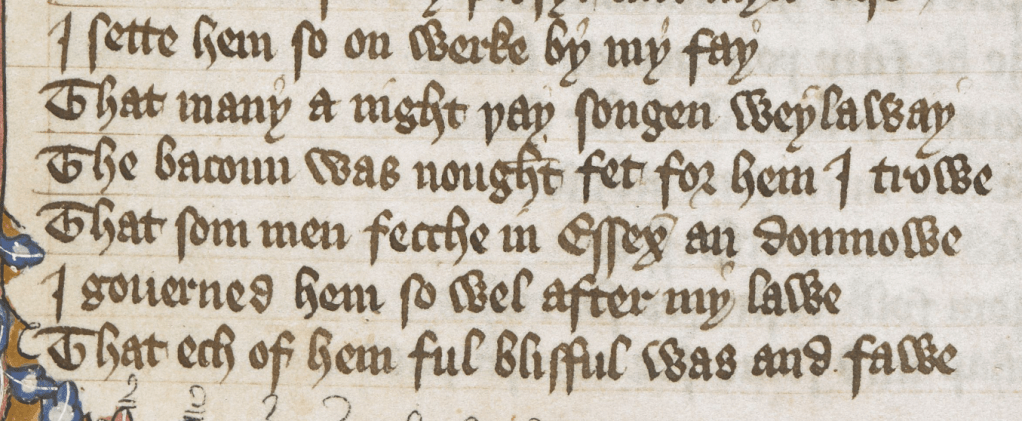 I sette hem so on werke by my fay
That many a night þay songen weylaway
The bacoun was nought fet for hem I trowe
That som men fecche in Essex an donmowe
I gouerned hem so wel after my lawe
That ech of hem ful blisful was and fawe